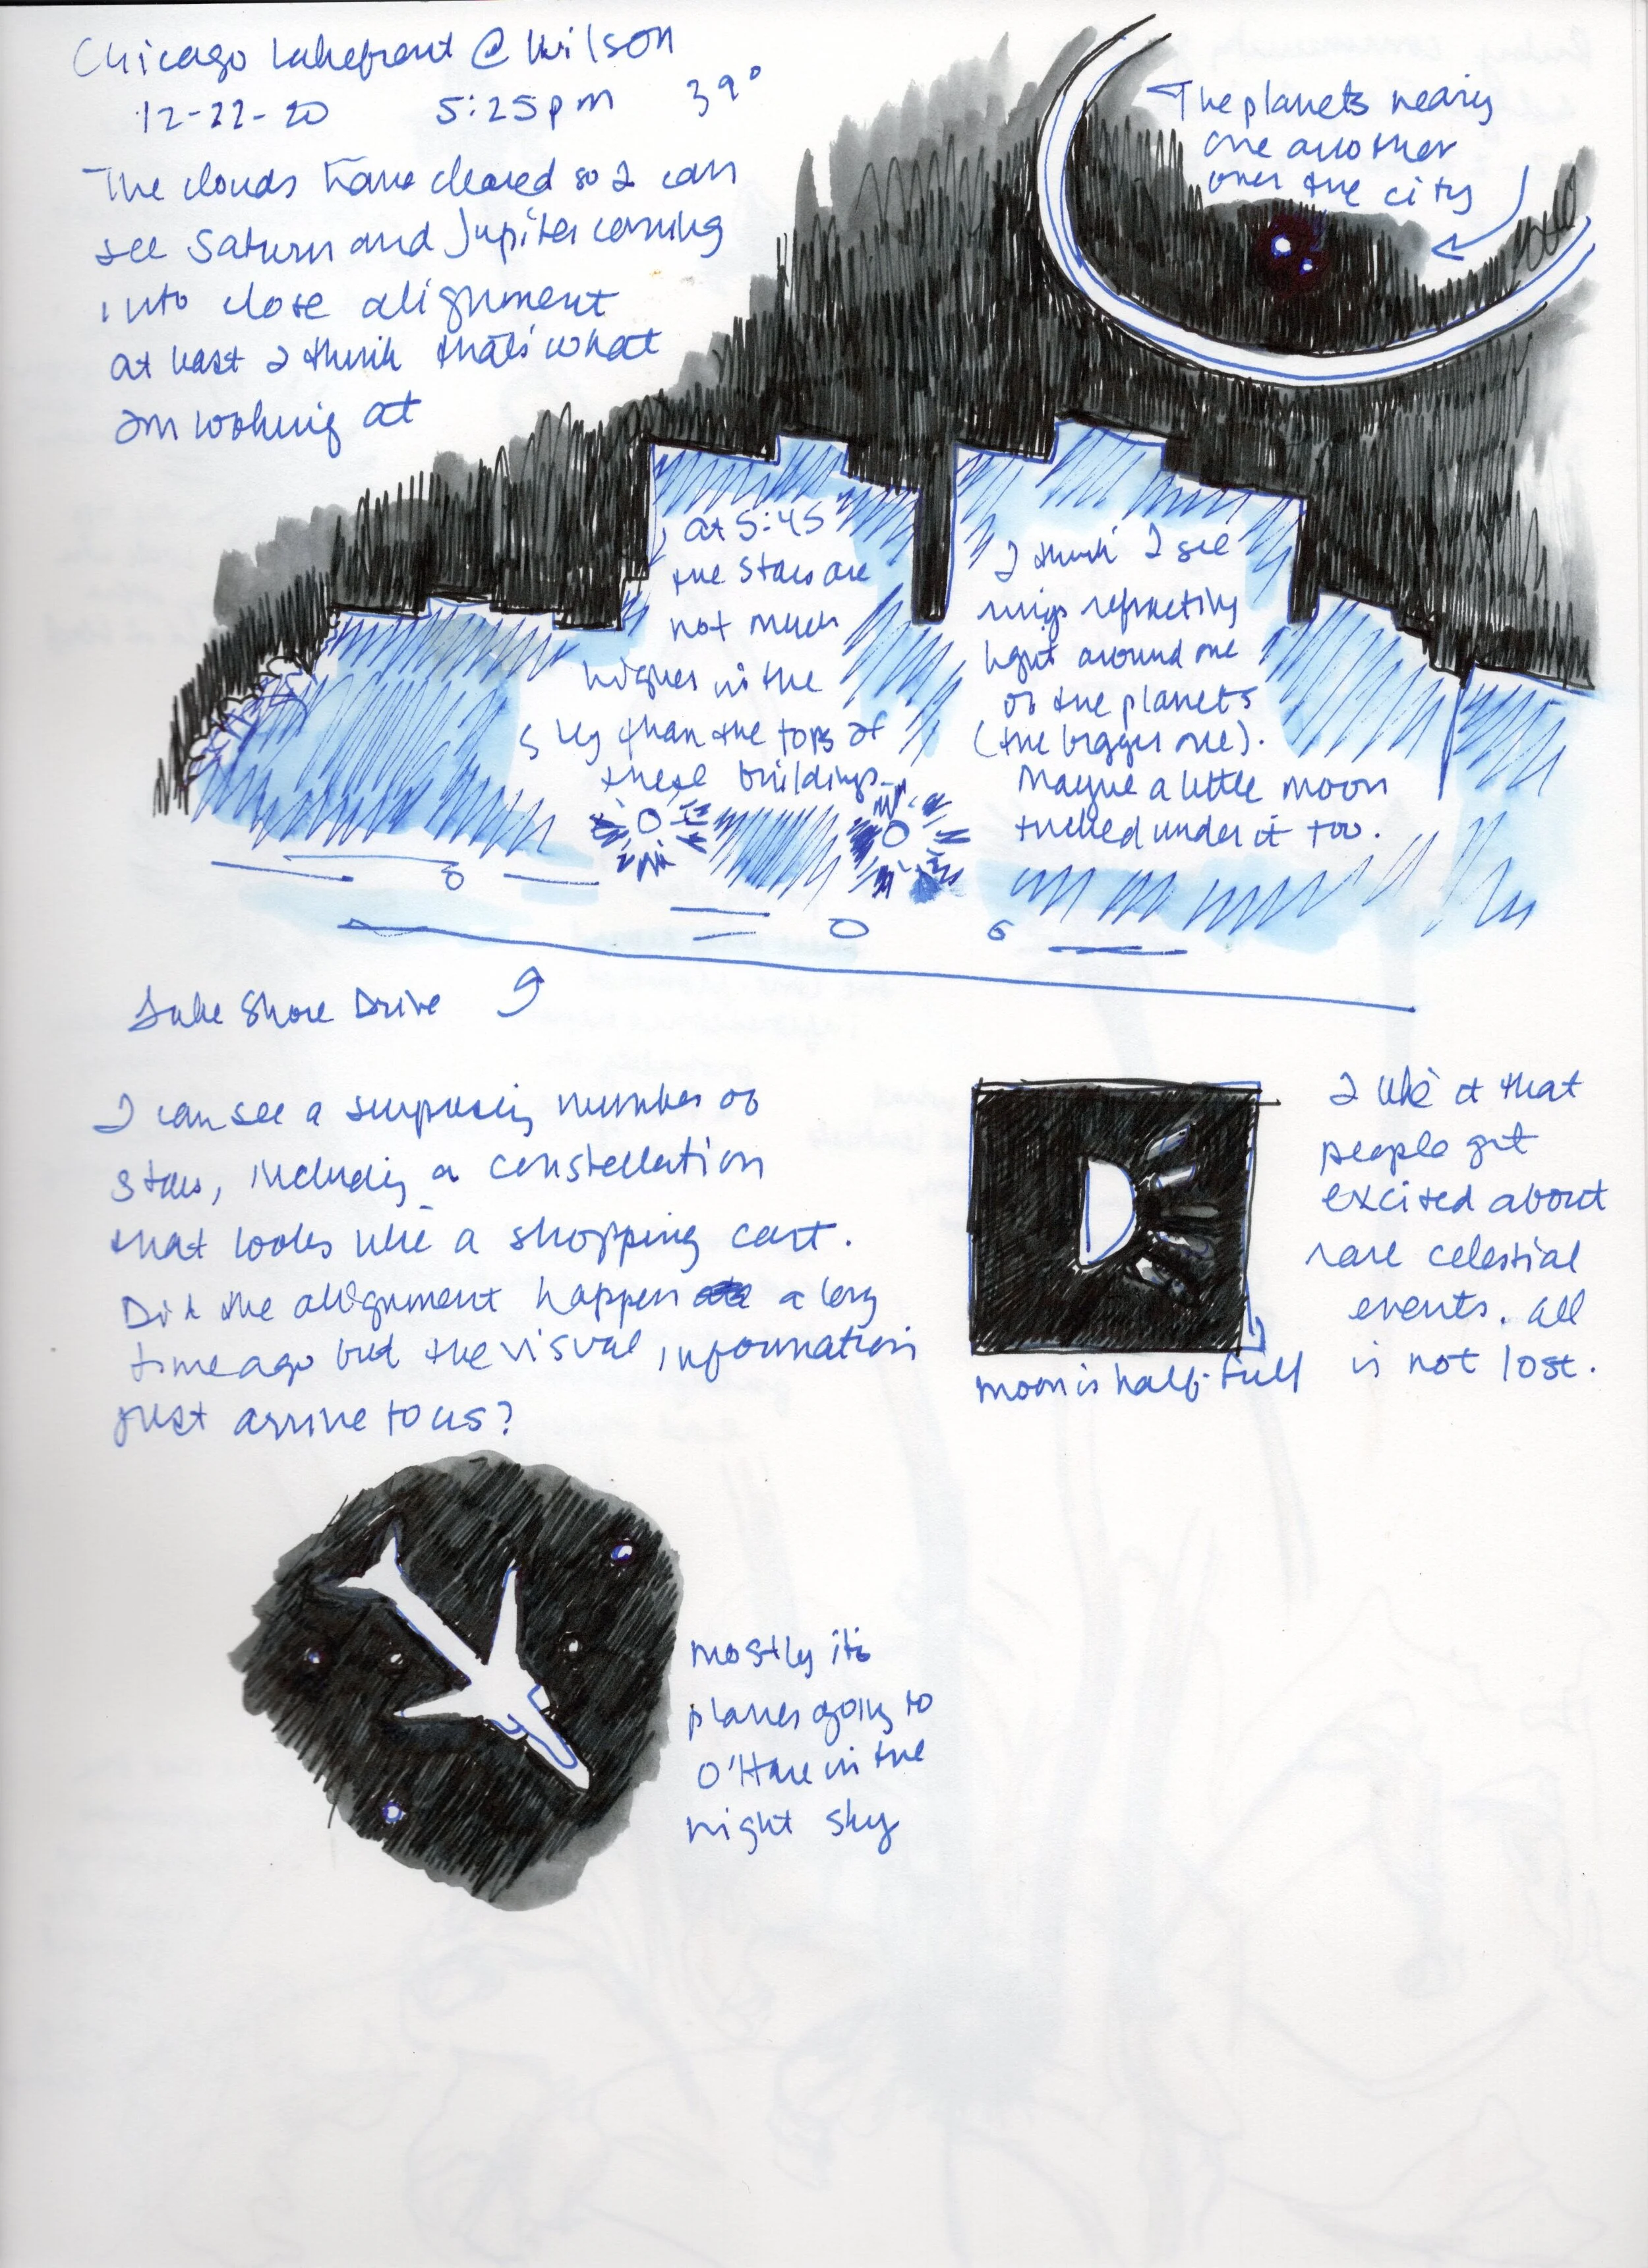 Chicago lakefront @ Wilson
12-22-20 5:25pm 39°
The clouds have cleared so I can
see Saturn and Jupiter coming
into close alignment
at least I think that's what
I'm looking at
The planets nearing
one another
over the city
at 5:45
the stars are
not much
higher in the
sky than the tops of
these buildings.
I think I see
rings refracting
light around one
of the planets
(the bigger one).
Maybe a little moon
tucked under it too.
Lake Shore Drive
I can see a surprising number of
stars, including a constellation
that looks like a shopping cart.
Did the alignment happen a long
time ago but the visual information
just arrive to us?
moon is half-full
I like it that
people get
excited about
rare celestial
events. All
is not lost.
mostly it's
planes going to
O'Hare in the
night sky